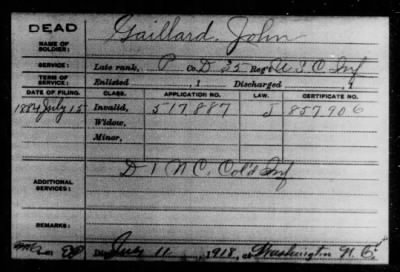 DEAD
NAME OF SOLDIER:
Gaillard, John
SERVICE:
Late rank, P Co. D 35 Reg't U S C Inf
TERM OF SERVICE:
Enlisted 1 Discharged , 1
DATE OF FILING. CLASS. APPLICATION NO. LAW. CERTIFICATE NO.
1884 July 15 Invalid, 517.887 J 857.906
Widow,
Minor,
ADDITIONAL SERVICES:
D 1 N C. Col'd Inf
REMARKS:
Died July 11, 1918, at Washington N. C.